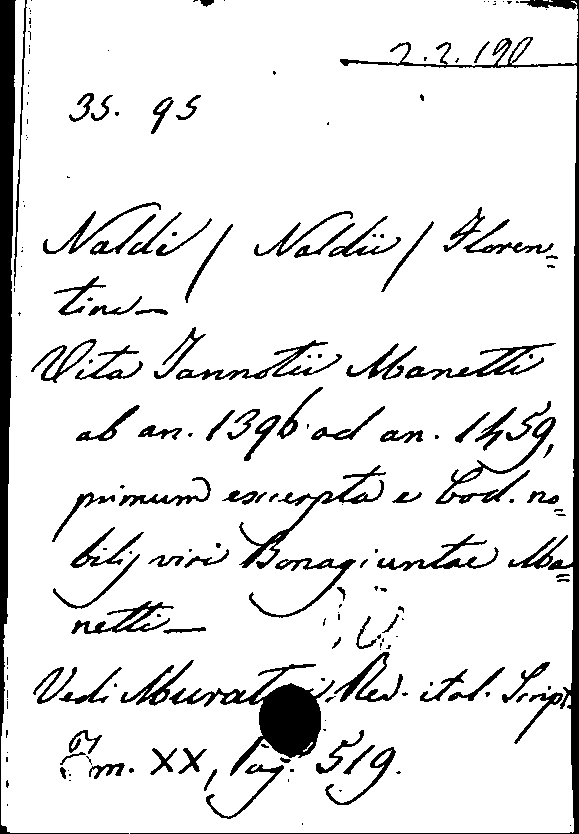 2.2.190
35. 95
Naldi / Naldii / Floren=
tini —
Vita Jannotii Manetti
ab an. 1396 ad an. 1459,
primum excerpta e Cod. no=
bilis viri Bonagiuntae Ma=
netti —
Vedi Muratori Rer. ital. Script.
Tom. XX, Pag. 519.